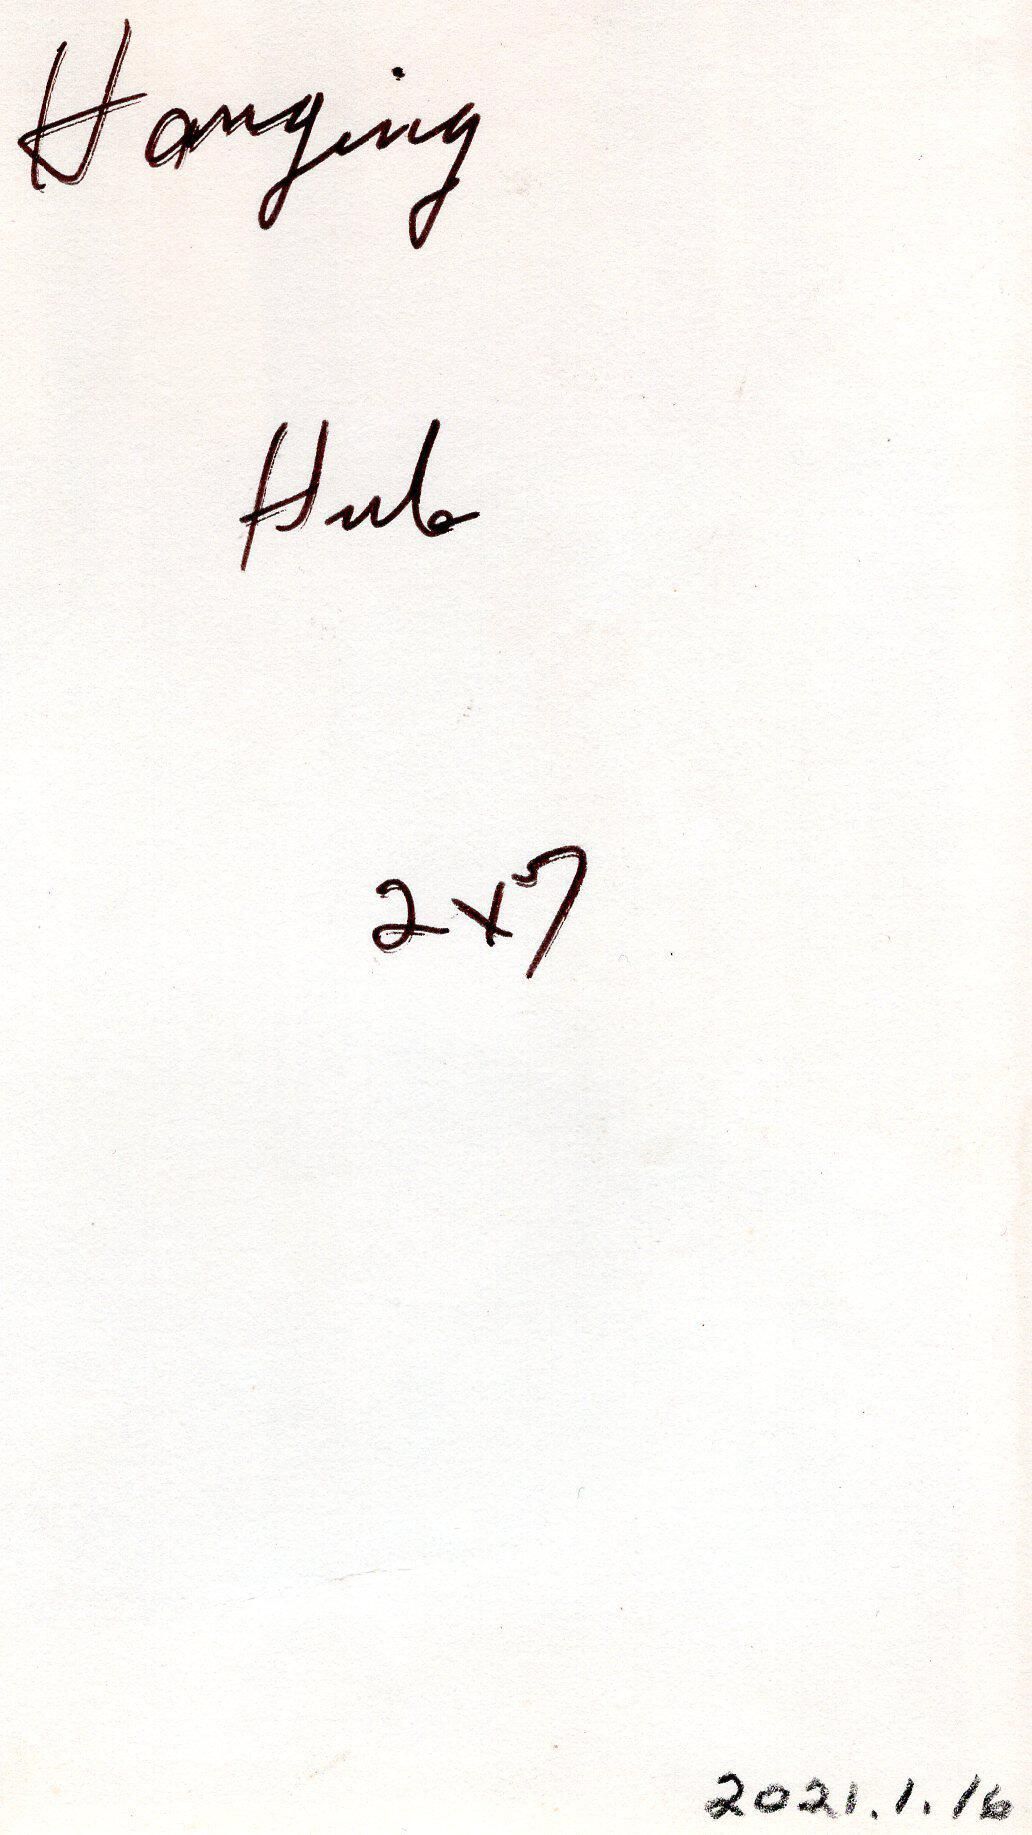 Hanging
Hub
2x7
2021.1.16